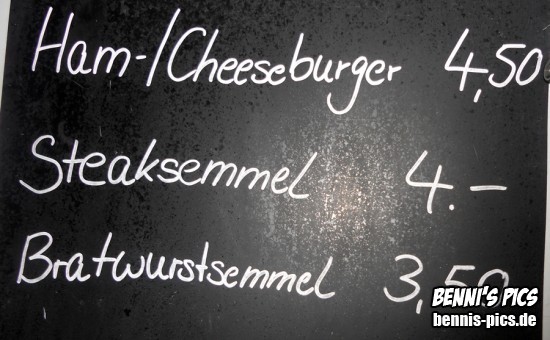 Ham-/Cheeseburger 4,50
Steaksemmel 4.–
Bratwurstsemmel 3,50
BENNI'S PICS
bennis-pics.de